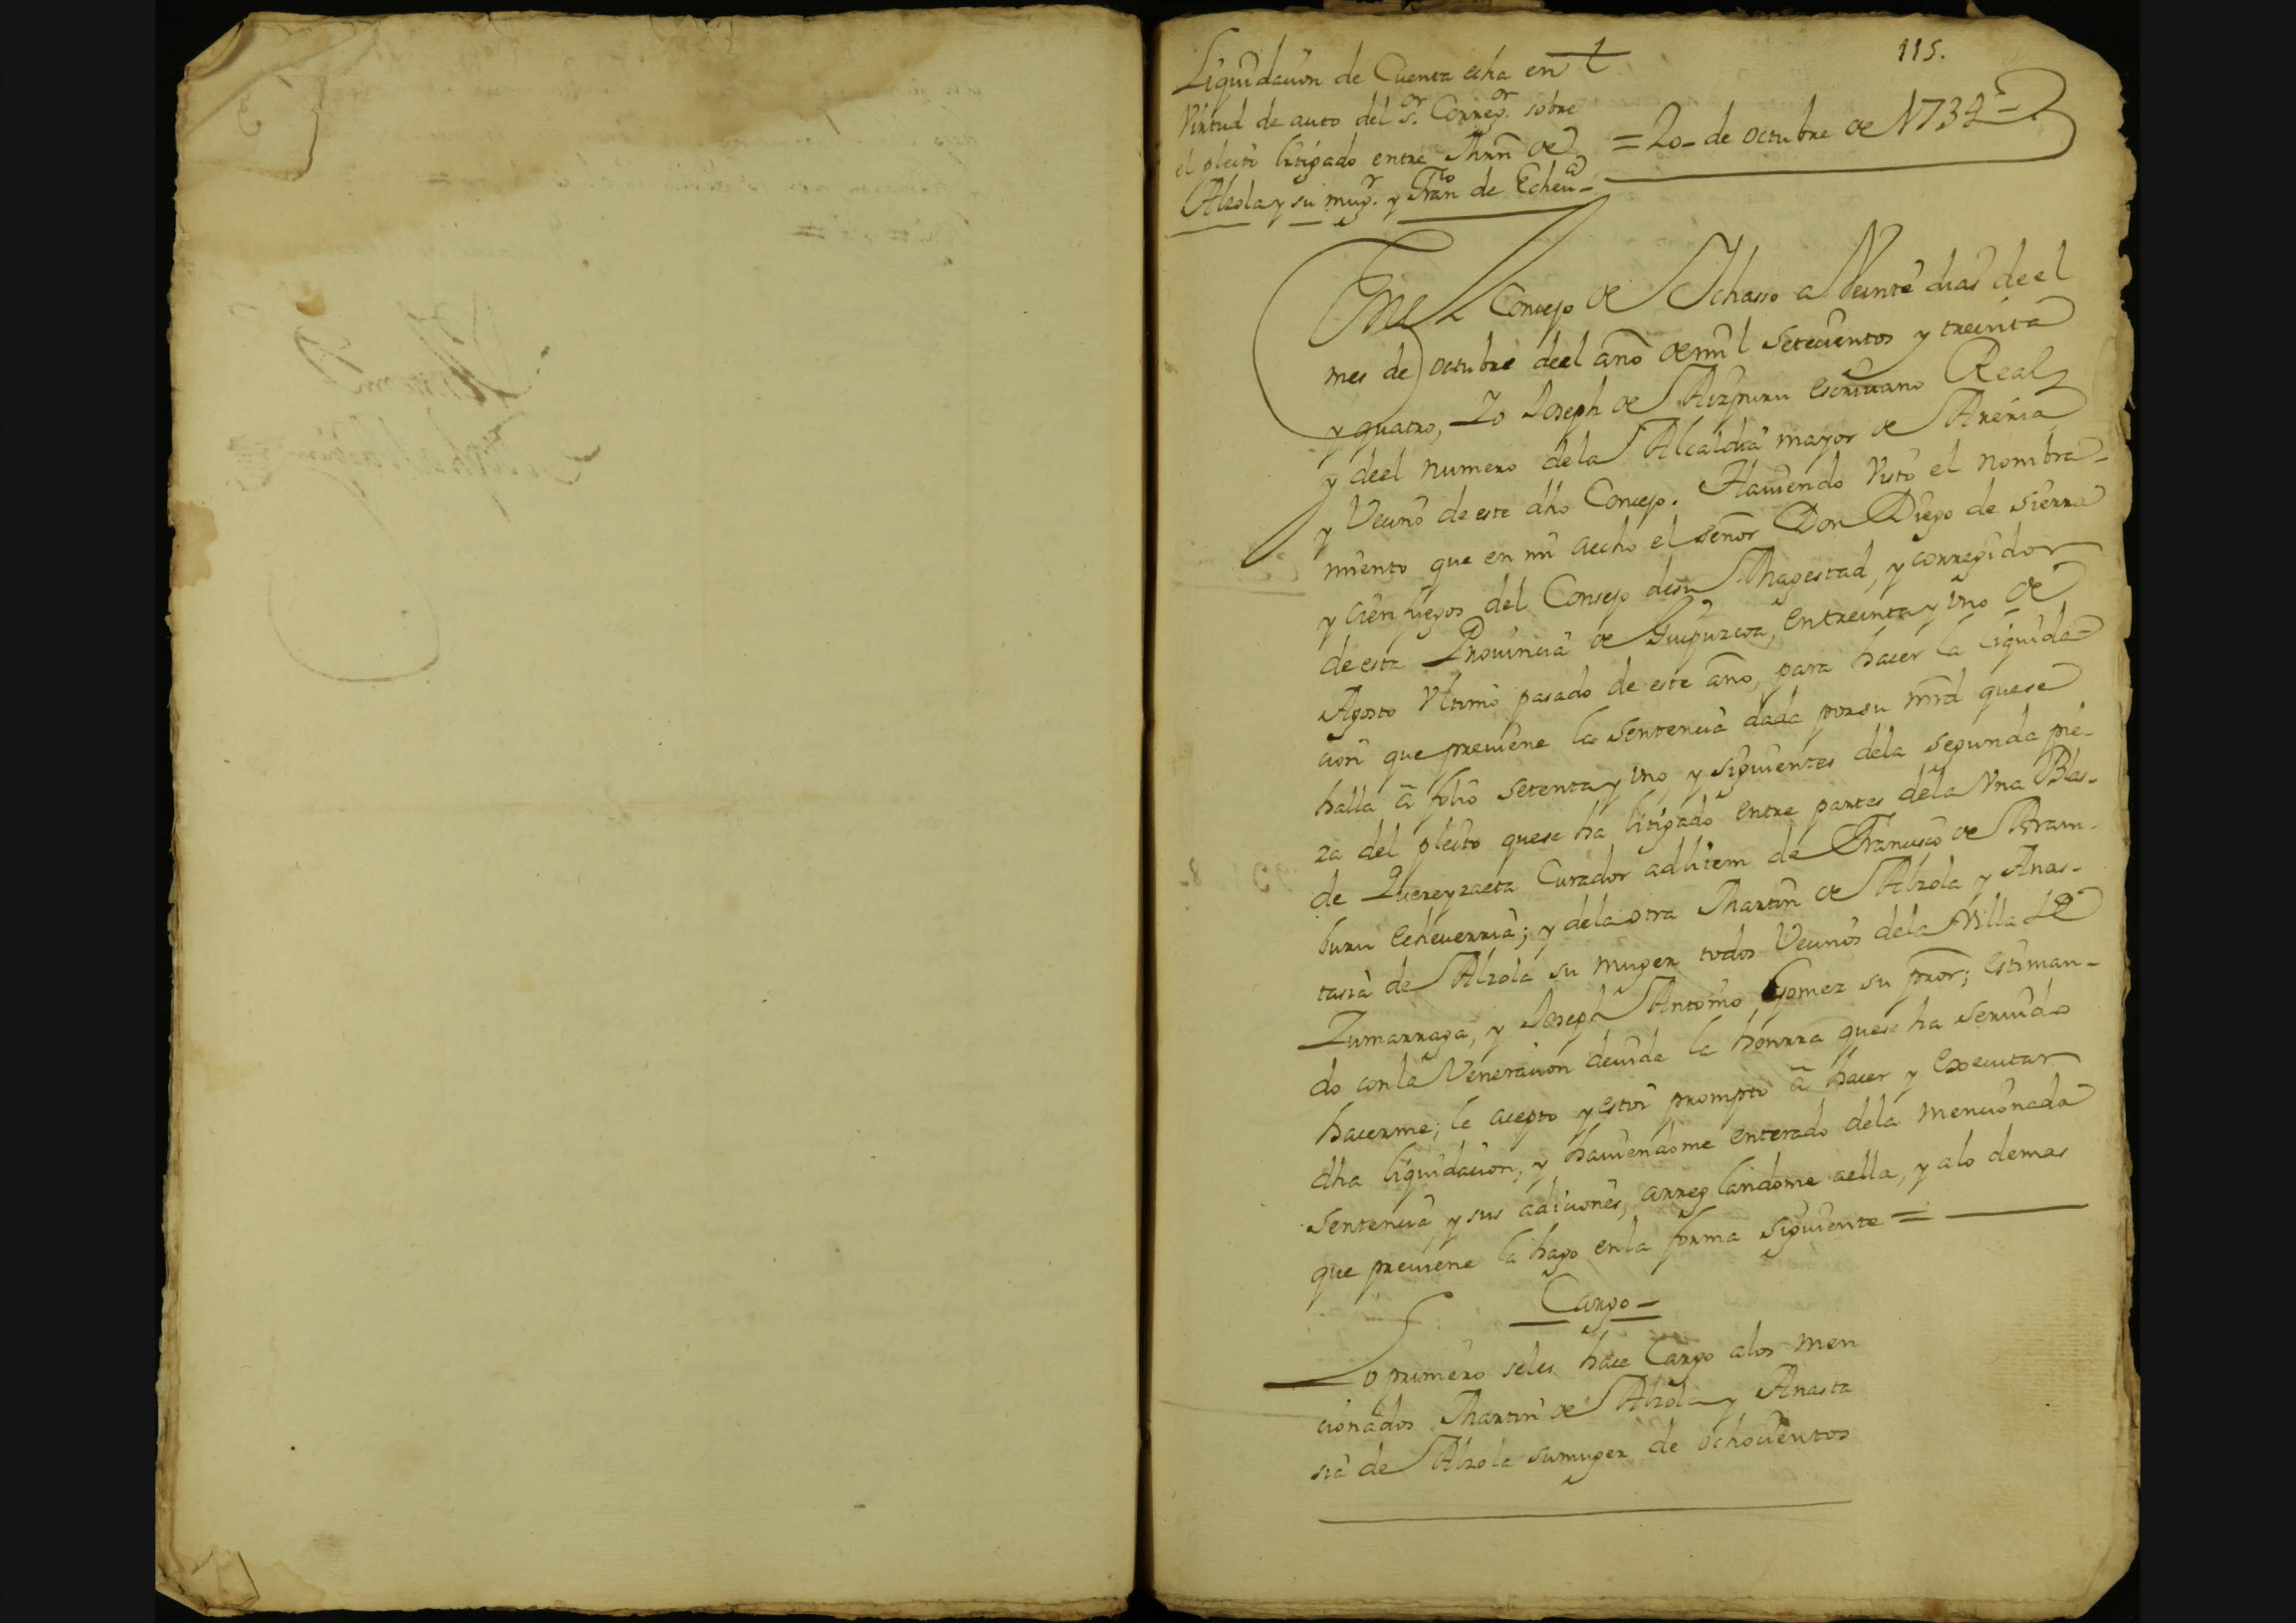 115.
Liquidacion de Cuenta echa en
Virtud de auto del s.or Correg.or sobre
el pleito litigado entre Mrñ de
Alzola y su mug.r y Fran.co de Echeu.a
= 20- de octubre de 1734 =
En el Concejo de Ichasso a Veinte dias de el
mes de octubre deel año de mil setecientos y treinta
y quatro, Yo Joseph de Aizpuru escriuano Real
y deel numero dela Alcaldia mayor de Areria
y Vecino de este dho Concejo. Hauiendo Visto el nombra-
miento que en mi aecho el señor Don Diego de Sierra
y cienfuegos del Consejo desu Magestad, y corregidor
de esta Prouincia de Guipuzcoa, en treinta y Vno de
Agosto Vltimo pasado de este año, para hacer la liquida-
cion que preuiene la Sentencia dada porsu mrd quese
halla â folio setenta y Vno, y siguientes dela segunda pie-
za del pleito quese ha litigado entre partes dela Vna Blas-
de Quereyzaeta Curador adlitem de Francisco de Aram-
buru echeuerria; y dela otra Martin de Alzola y Anas-
tasia de Alzola su muger todos Vecinos dela Villa de
Zumarraga, y Joseph Antonio Gomez su pror; estiman-
do conla Veneracion deuida la honrra quese ha seruido
hacerme; le acepto y estoi prompto â hacer y executar
dha liquidacion, y hauiendome enterado dela mencionada
Sentencia, y sus adiciones, arreglandome aella, y alo demas
que preuiene la hago enla forma siguiente =
Cargo -
Lo primero seles hace Cargo alos men
cionados Martin de Alzola y Anasta
sia de Alzola sumuger de ochocientos